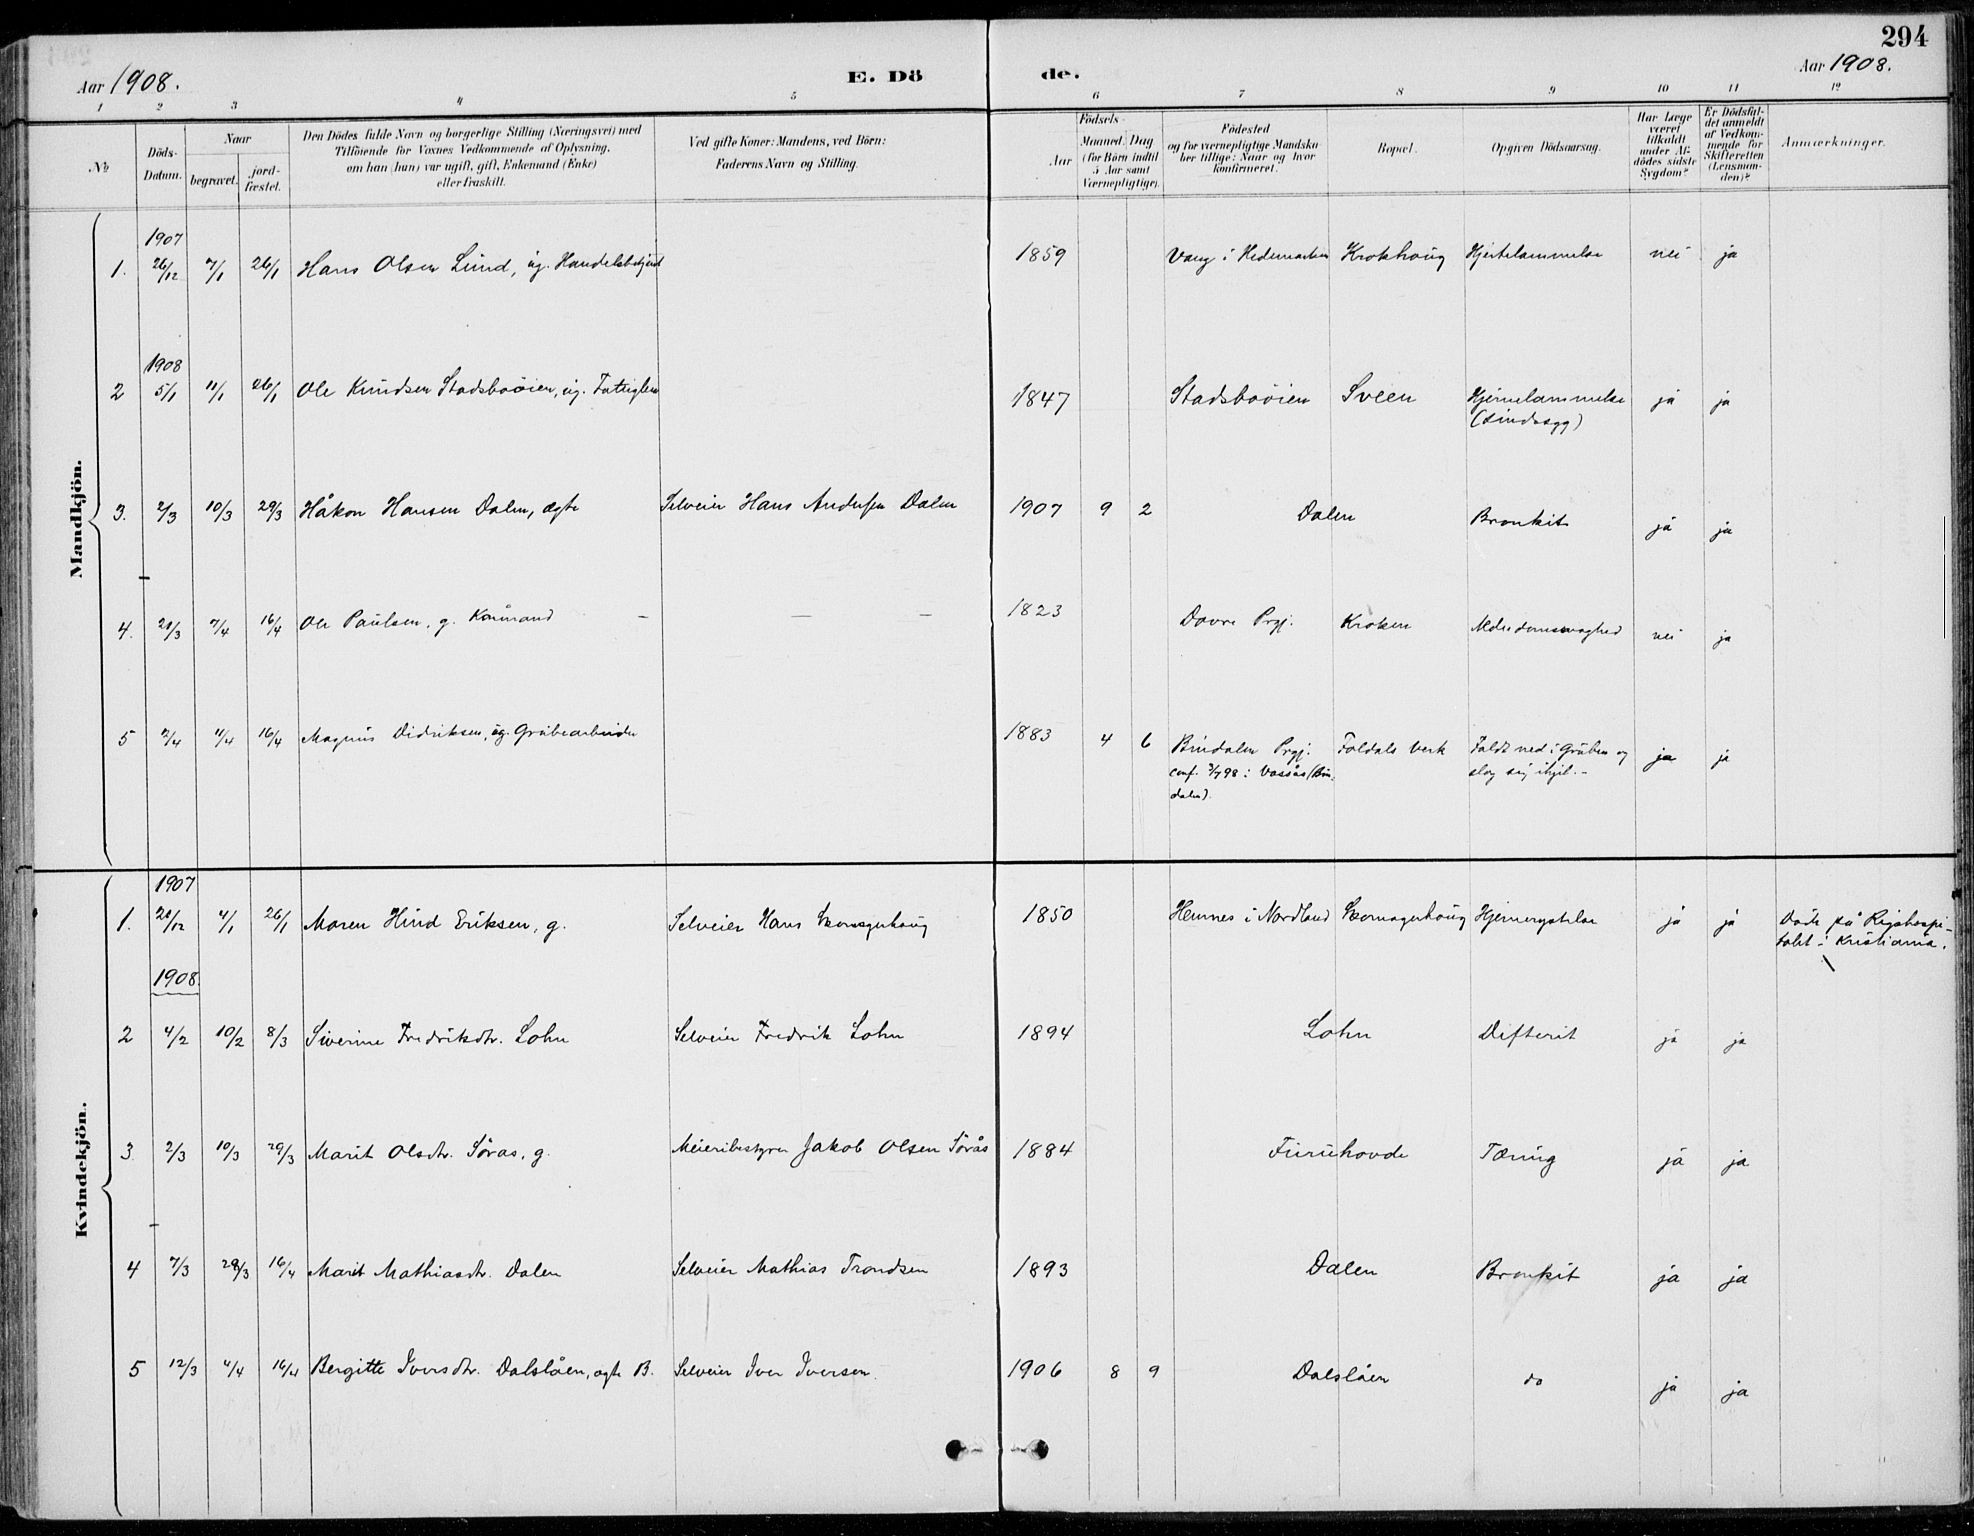 294
Aar 1908.
E. Dö
de.
Aar 1908.
1 2 3 4 5 6 7 8 9 10 11 12
No
Döds-
Datum.
Naar
begravet.
jord-
fæstet.
Den Dödes fulde Navn og borgerlige Stilling (Næringsvei) med
Tilföiende for Voxnes Vedkommende af Oplysning,
om han (hun) var ugift, gift, Enkemand (Enke)
eller fraskilt.
Ved gifte Koner: Mandens, ved Börn:
Faderens Navn og Stilling.
Födsels-
Aar
Maaned. Dag
(for Börn indtil
5 Aar samt
Værnepligtige).
Födested
og for værnepligtige Mandska-
ber tillige: Naar og hvor
konfirmeret.
Bopæl.
Opgiven Dödsaarsag.
Har Læge
været
tilkaldt
under Af-
dödes sidste
Sygdom?
Er Dödsfal-
det anmeldt
af Vedkom-
mende for
Skifteretten
(Lensman-
den)?
Anmærkninger.
Mandkjön.
1907
1. 26/12 7/1 26/1 Hans Olsen Lund, ug. Handelsbetjent 1859 Vang i Hedemarken Krokhaug Hjertelammelse nei ja
1908
2 5/1 11/1 26/1 Ole Knudsen Stadsbuøien, ug. Fattiglem 1847 Stadsbuøien Sveen Hjernelammelse ja ja
3. 2/3 10/3 29/3 Håkon Hansen Dalen, ægte Selveier Hans Andersen Dalen 1907 9 2 Dalen Bronkit ja ja
4. 21/3 7/4 16/4 Ole Paulsen, g. Kårmand – – – 1823 Dovre Prgj. Kroken Alderdomssvaghed nei ja
5 2/4 11/4 16/4 Magnus Didriksen, ug. Grubearbeider 1883 4 6 Bindalen Prgj. Foldals Verk Faldt ned i Gruben og ja ja
conf. 3/7 98 i Vassås (Bin-
dalen).
slog sig ihjel. –
Kvindekjön.
1907
1. 21/12 4/1 26/1 Maren Hind Eriksen, g. Selveier Hans Skomagerhaug 1850 Hemnes i Nordland Skomagerhaug Hjernerystelse ja ja Døde på Rigshospi-
talet i Kristiania.
1908.
2 4/2 10/2 8/3 Siverine Fredriksdtr. Lohn Selveier Fredrik Lohn 1894 Lohn Difterit ja ja
3 2/3 10/3 29/3 Marit Olsdtr. Sörås, g. Meieribestyrer Jakob Olsen Sörås 1884 Furuhovde Tæring ja ja
4 7/3 29/3 16/4 Marit Mathiasdtr. Dalen Selveier Mathias Trondsen 1893 Dalen Bronkit ja ja
5 12/3 4/4 16/4 Bergitte Iversdtr. Dalslåen, ægte B. Selveier Iver Iversen 1906 8 9 Dalslåen do ja ja